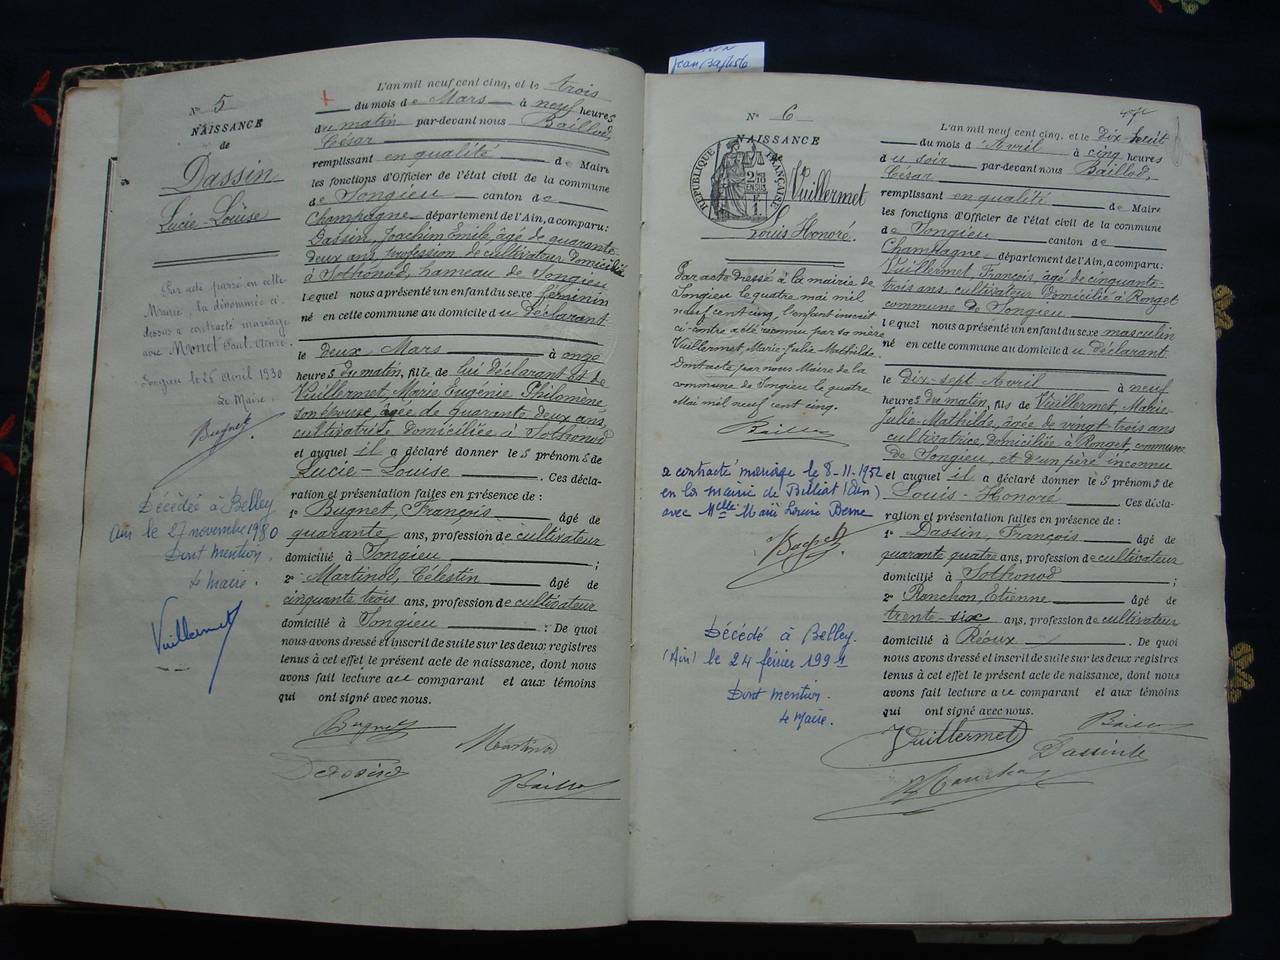 Jean Baptiste
N° 5
NAISSANCE
de
Dassin
Lucie-Louise
Par acte passé en cette
Mairie, la dénommée ci-
dessus a contracté mariage
avec Monet
Songieu le 25 Avril 1930
Le Maire.
Bugnet
Décédée à Belley
Ain le 27 novembre 1980
Dont mention
Le Maire.
Vuillermet
L'an mil neuf cent cinq, et le trois
du mois de Mars à neuf heures
du matin par-devant nous Baillod,
César
remplissant en qualité de Maire
les fonctions d'Officier de l'état civil de la commune
de Songieu canton de
Champagne département de l'Ain, a comparu:
Dassin, Joachim Emile âgé de quarante-
deux ans, profession de cultivateur domicilié
à Sothonod, hameau de Songieu
lequel nous a présenté un enfant du sexe féminin
né en cette commune au domicile du déclarant
le Deux Mars à onze
heures du matin, fille de lui déclarant et de
Vuillermet Marie Eugénie Philomène
son épouse, âgée de quarante deux ans,
cultivatrice domiciliée à Sothonod
et auquel il a déclaré donner les prénoms de
Lucie-Louise. Ces décla-
ration et présentation faites en présence de :
1° Bugnet, François âgé de
quarante ans, profession de cultivateur
domicilié à Songieu ;
2° Martinod, Célestin âgé de
cinquante trois ans, profession de cultivateur
domicilié à Songieu : De quoi
nous avons dressé et inscrit de suite sur les deux registres
tenus à cet effet le présent acte de naissance, dont nous
avons fait lecture au comparant et aux témoins
qui ont signé avec nous.
Bugnet
Martinod
Baillod
N° 6
NAISSANCE
RÉPUBLIQUE FRANÇAISE
Vuillermet
Louis Honoré.
Par acte dressé à la mairie de
Songieu le quatre mai mil
neuf cent cinq, l'enfant inscrit
ci-contre a été reconnu par sa mère
Vuillermet Marie-Julie Mathilde
Dont acte par nous Maire de la
commune de Songieu le quatre
Mai mil neuf cent cinq.
Baillod
a contracté mariage le 8-11-1952
en la mairie de Billiat (Ain)
avec Melle Marie Louise Berne
Bugnet
Décédé à Belley
(Ain) le 24 février 1994
Dont mention
Le Maire.
L'an mil neuf cent cinq, et le Dix huit
du mois d'Avril à cinq heures
du soir par-devant nous Baillod,
César
remplissant en qualité de Maire
les fonctions d'Officier de l'état civil de la commune
de Songieu canton de
Champagne département de l'Ain, a comparu:
Vuillermet François, âgé de cinquante-
trois ans, cultivateur domicilié à Ronget
commune de Songieu
lequel nous a présenté un enfant du sexe masculin
né en cette commune au domicile du déclarant
le Dix-sept Avril à neuf
heures du matin, fils de Vuillermet, Marie
Julie-Mathilde, âgée de vingt-trois ans
cultivatrice domiciliée à Ronget, commune
de Songieu, et d'un père inconnu
et auquel il a déclaré donner les prénoms de
Louis-Honoré Ces décla-
ration et présentation faites en présence de :
1° Dassin, François âgé de
quarante quatre ans, profession de cultivateur
domicilié à Sothonod ;
2° Ranchon, Etienne âgé de
trente-six ans, profession de cultivateur
domicilié à Réoux. De quoi
nous avons dressé et inscrit de suite sur les deux registres
tenus à cet effet le présent acte de naissance, dont nous
avons fait lecture au comparant et aux témoins
qui ont signé avec nous.
Vuillermet